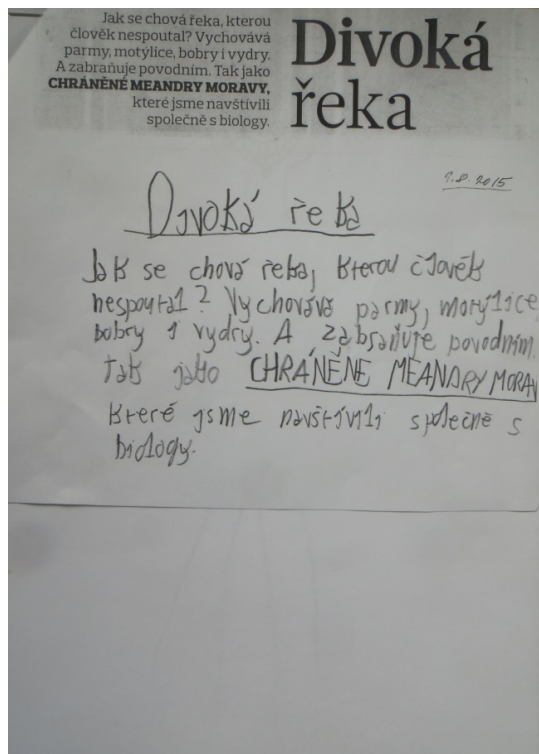 Jak se chová řeka, kterou
člověk nespoutal? Vychovává
parmy, motýlice, bobry i vydry.
A zabraňuje povodním. Tak jako
CHRÁNĚNÉ MEANDRY MORAVY,
které jsme navštívili
společně s biology.
Divoká
řeka
9.8.2015
Divoká řeka
Jak se chová řeka, kterou člověk
nespoutal? Vychovává parmy, motýlice,
bobry i vydry. A zabraňuje povodním.
Tak jako CHRÁNĚNE MEANDRY MORAV
které jsme navštívili společně s
biology.